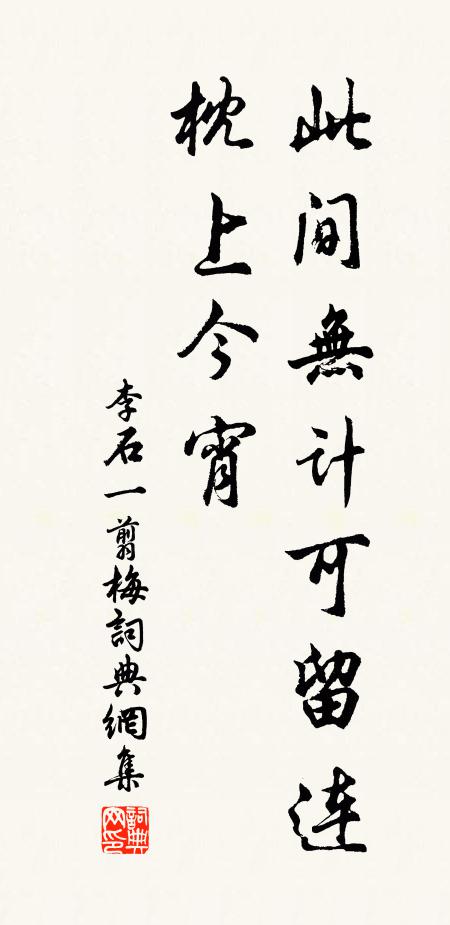 此间無计可留连
枕上今宵
李石一翦梅詞典網集
詞典网印